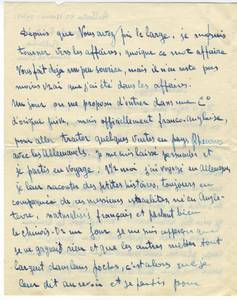 Depuis que Vous avez pris le large, je me suis
tourner vers les affaires, quoique ce mot affaire
Vous fait déjà un peu sourire, mais il n'en reste pas
moins vrai que j'ai été dans les affaires.
Un jour on me propose d'entrer dans une Cie
d'origine juive, mais officiellement franco-Anglaise,
pour aller traiter quelques ventes en pays Rhénans
avec les Allemands. Je me suis laissé persuader et
je partis en voyage. Vs moi j'ai voyagé en Allemagne,
je leur racontais des petites histoires, toujours en
compagnie de ces messieurs israélites né en Angle-
terre, naturalisés français et parlant bien
le chinois. Un jour je me suis aperçu que
je ne gagnais rien et que les autres mettaient tout
l'argent dans leurs poches, c'est alors que je
leur dit au revoir et je partis pour